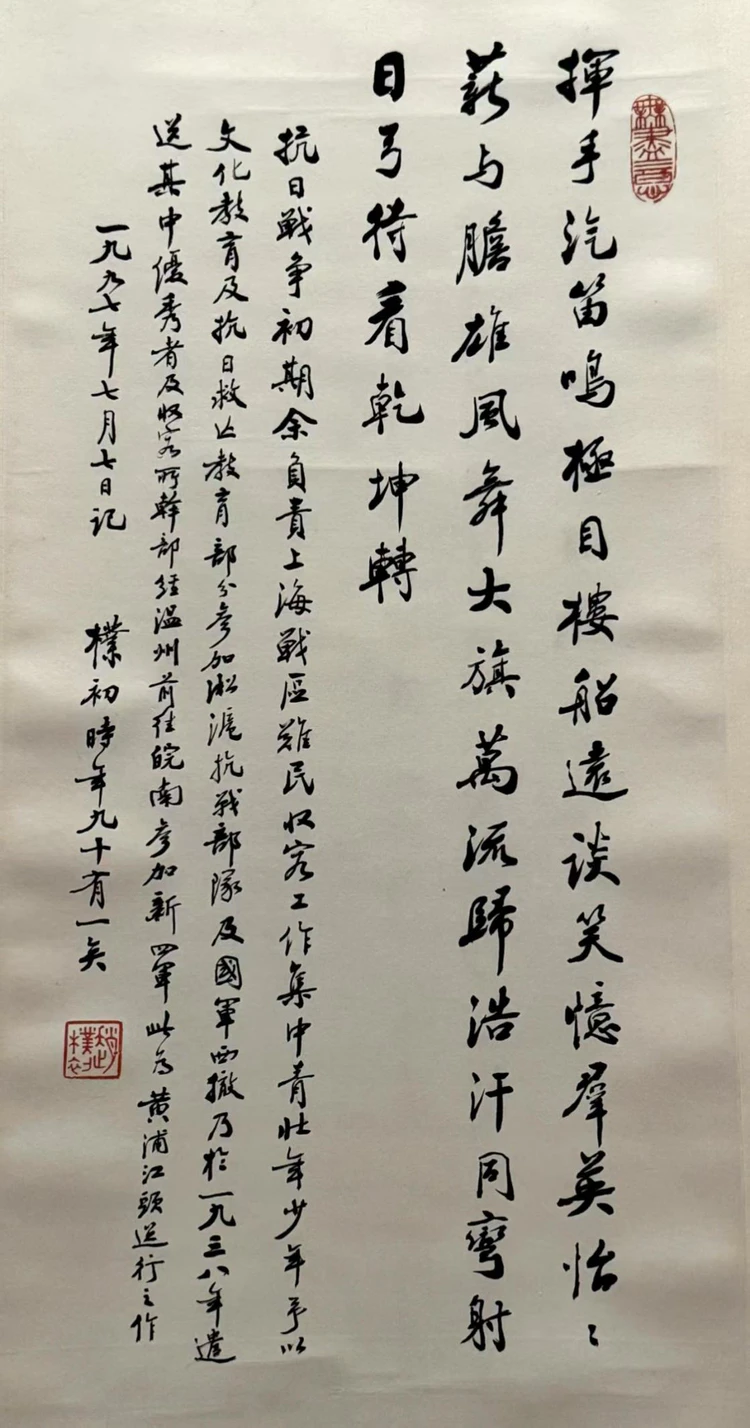 揮手汽笛鳴極目樓船遠談笑憶羣英怡〻
薪与膽雄風舞大旗萬流歸浩汗同彎射
日弓待看乾坤轉
抗日戰争初期余負責上海戰區難民收容工作集中青壯年少年予以
文化教育及抗日救亡教育部分参加淞滬抗战部隊及國軍西撤乃於一九三八年遣
送其中優秀者及收容所幹部經温州前往皖南参加新四軍此为黄浦江頭送行之作
一九九七年七月七日記
樸初時年九十有一矣
趙樸初